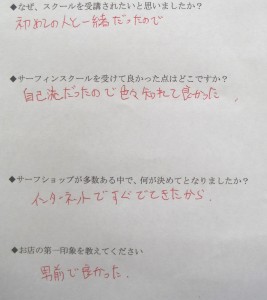 ◆なぜ、スクールを受講されたいと思いましたか？
初めての人と一緒だったので
◆サーフィンスクールを受けて良かった点はどこですか？
自己流だったので色々知れて良かった．
◆サーフショップが多数ある中で、何が決めてとなりましたか？
インターネットですぐでてきたから．
◆お店の第一印象を教えてください
男前で良かった．